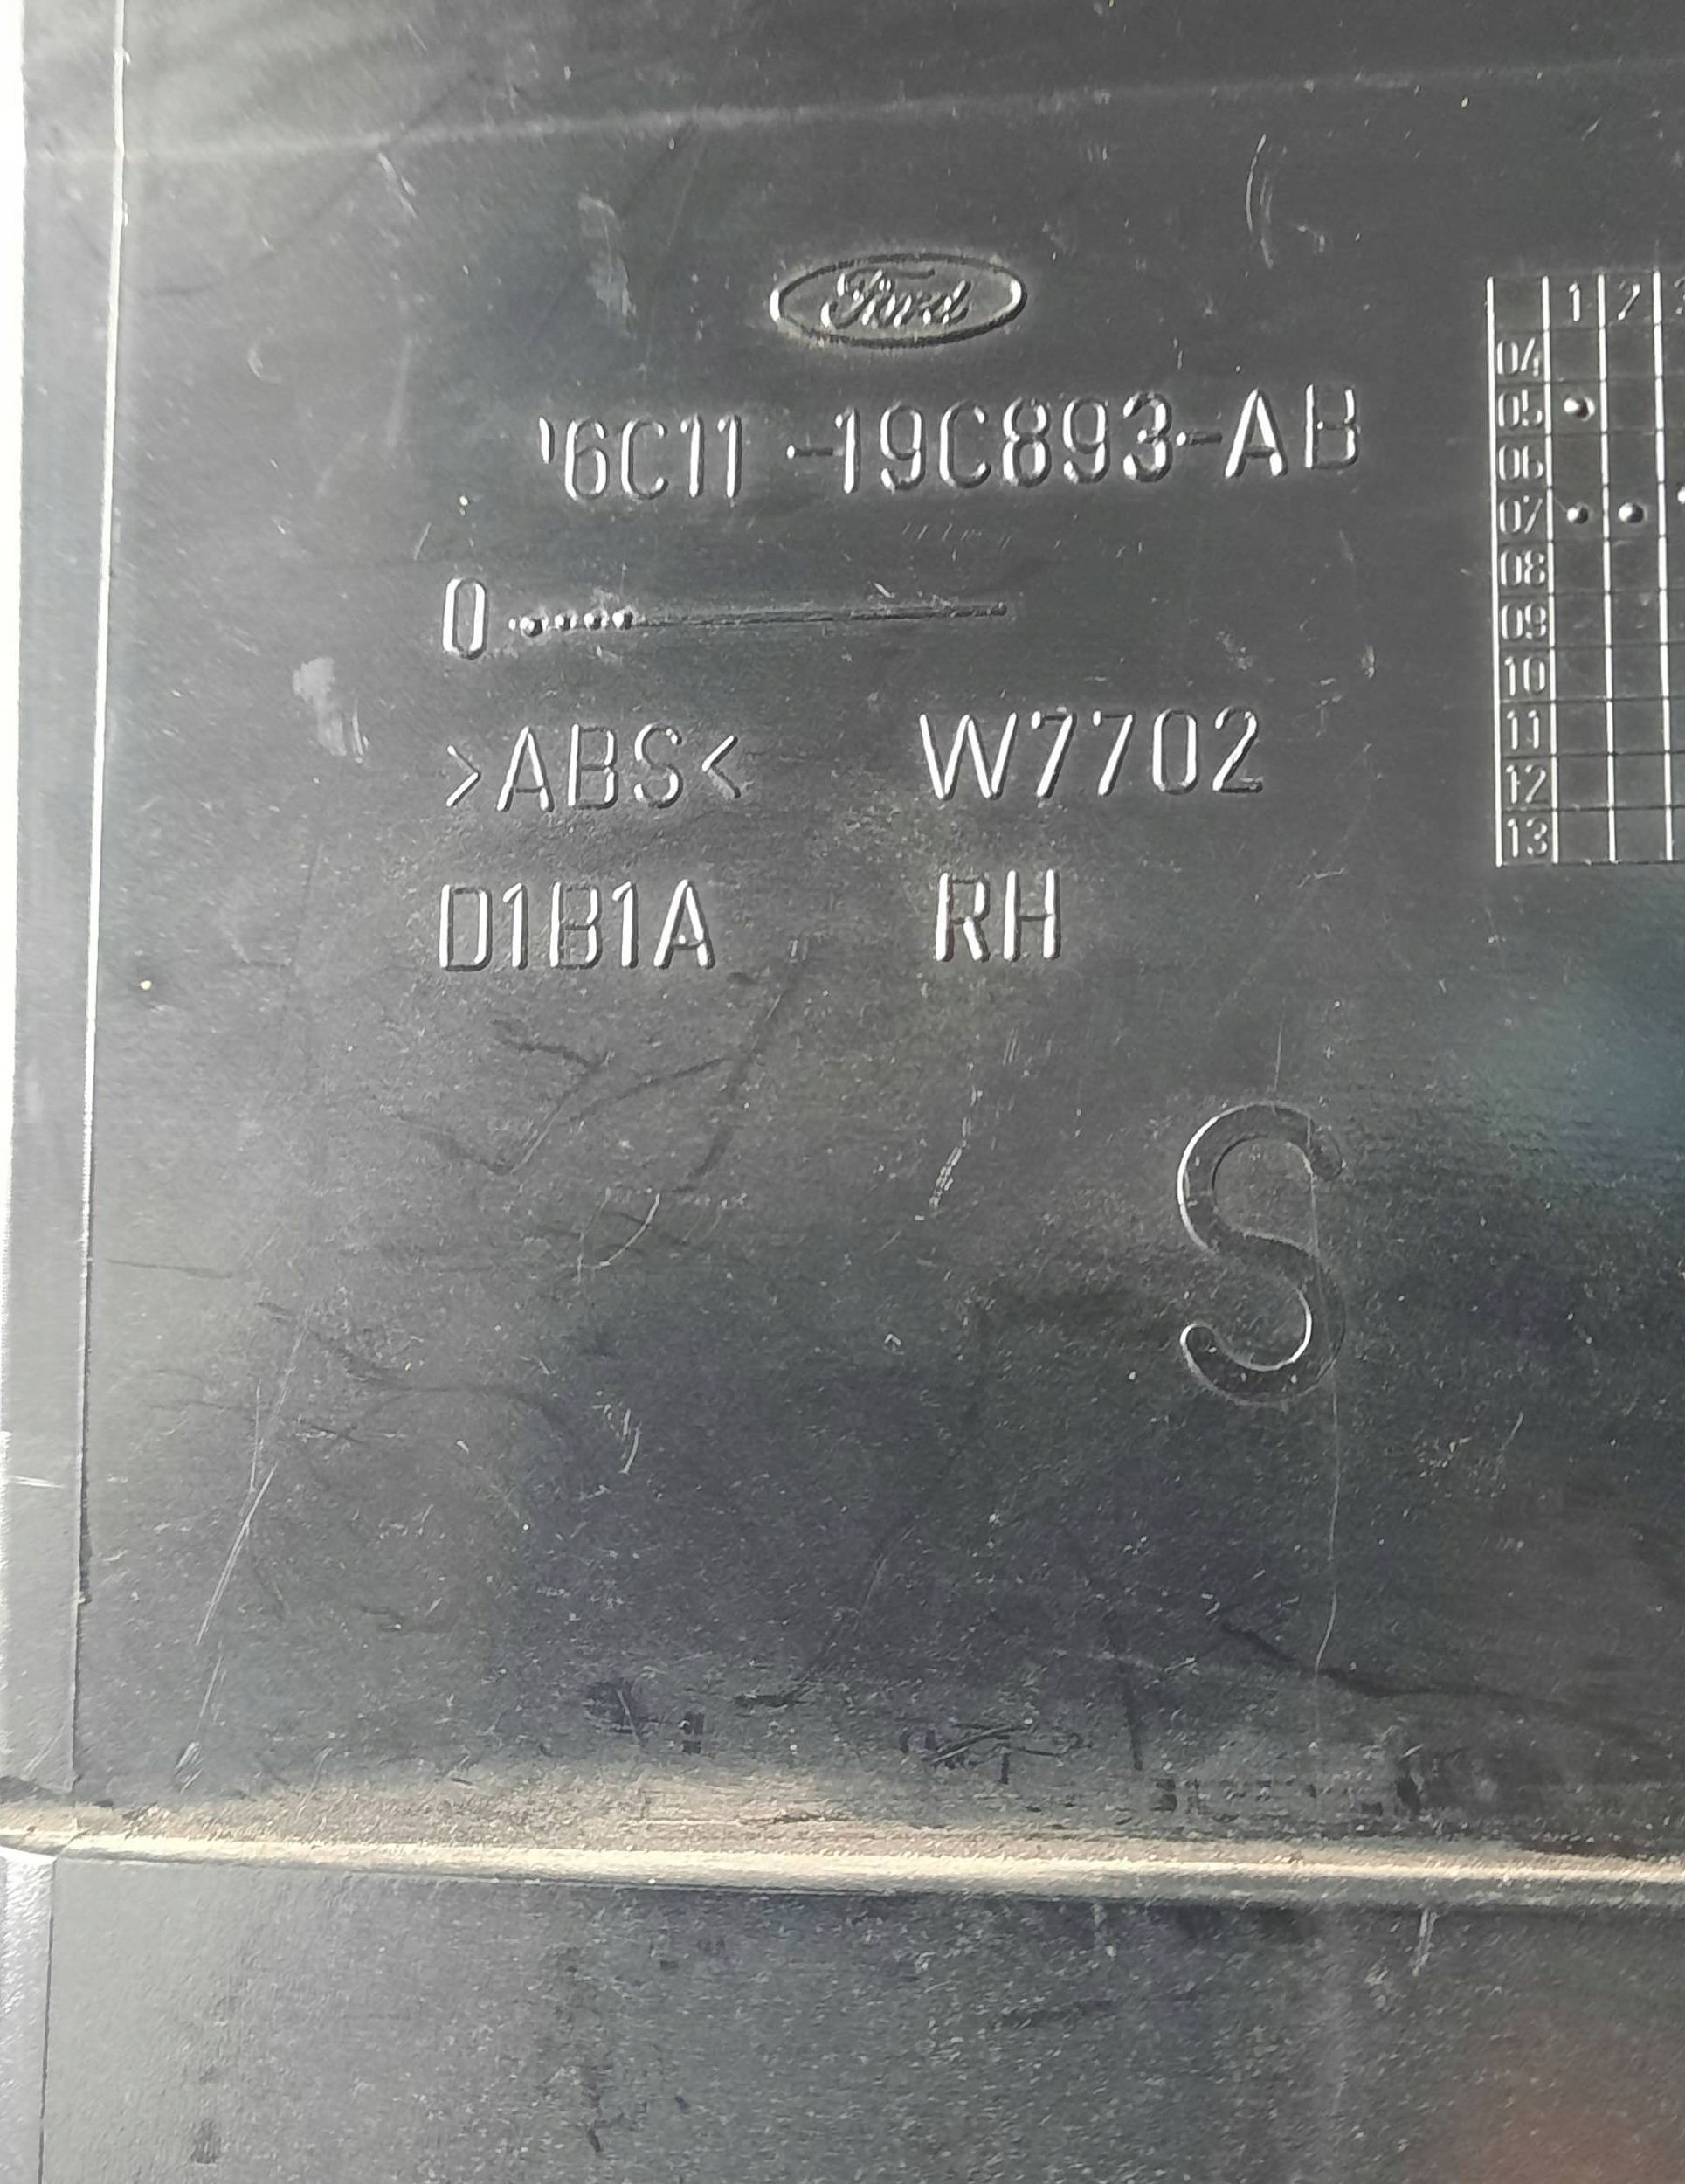 Ford
6C11-19C893-AB
0
>ABS< W7702
D1B1A RH
S
1 2
04
05
06
07
08
09
10
11
12
13